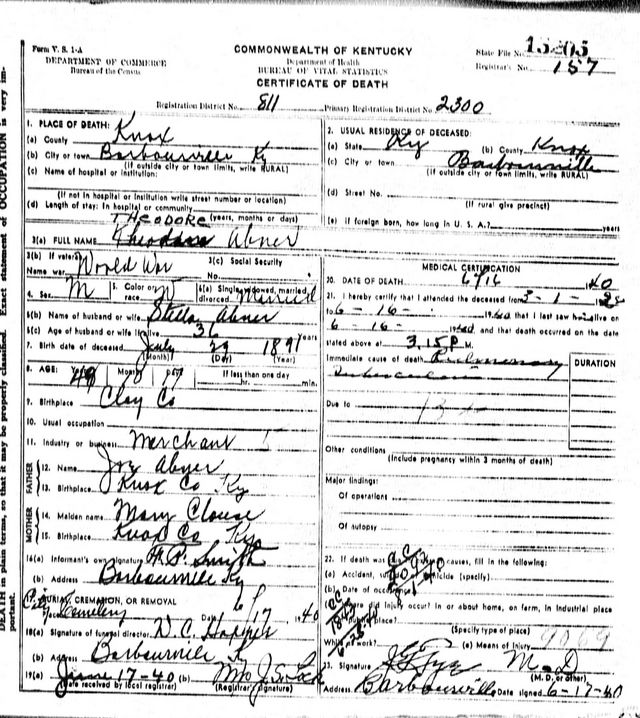 Form V. S. 1-A
DEPARTMENT OF COMMERCE
Bureau of the Census
COMMONWEALTH OF KENTUCKY
Department of Health
BUREAU OF VITAL STATISTICS
CERTIFICATE OF DEATH
State File No.
Registrar's No. 157
Registration District No. 811
Primary Registration District No. 2300
1. PLACE OF DEATH:
(a) County Knox
(b) City or town Barbourville Ky
(If outside city or town limits, write RURAL)
(c) Name of hospital or institution:
(If not in hospital or institution write street number or location)
(d) Length of stay: In hospital or community
(years, months or days)
2. USUAL RESIDENCE OF DECEASED:
(a) State Ky (b) County Knox
(c) City or town Barbourville
(If outside city or town limits, write RURAL)
(d) Street No.
(If rural give precinct)
(e) If foreign born, how long in U. S. A.? years
THEODORE
3(a) FULL NAME Abner
3(b) If veteran Name war World War
3(c) Social Security No.
4. Sex M 5. Color or race W 6(a) Single, widowed, married, divorced Married
6(b) Name of husband or wife Stella Abner
6(c) Age of husband or wife if alive 36 years
7. Birth date of deceased July 29 1891
(Month) (Day) (Year)
8. AGE: Years 48 Months Days 17 If less than one day hr. min.
9. Birthplace Clay Co
10. Usual occupation
11. Industry or business Merchant
FATHER
12. Name Abner
13. Birthplace Knox Co Ky
MOTHER
14. Maiden name Mary Clouse
15. Birthplace Knox Co Ky
16(a) Informant's own signature Smith
(b) Address Barbourville Ky
17. BURIAL, CREMATION, OR REMOVAL
City Cemetery 6/17 1940
18(a) Signature of funeral director
(b) Address Barbourville Ky
19(a) June 17-40 (b) Mrs J.S. Lock
(Date received by local registrar) (Registrar's signature)
MEDICAL CERTIFICATION
20. DATE OF DEATH 6/16 1940
21. I hereby certify that I attended the deceased from 3-1-
to 6-16- 1940 that I last saw him alive on
6-16- 1940 and that death occurred on the date
stated above at 3.15 P M.
Immediate cause of death Pulmonary
Tuberculosis
DURATION
Due to
Other conditions
(Include pregnancy within 3 months of death)
Major findings:
Of operations
Of autopsy
22. If death was due to external causes, fill in the following:
(a) Accident, suicide, homicide (specify)
(b) Date of occurrence
(c) Where did injury occur? In or about home, on farm, in industrial place
public place?
(Specify type of place)
While at work? (e) Means of Injury
23. Signature M.D
(M. D. or other)
Address Barbourville Date signed 6-17-40
DEATH in plain terms, so that it may be properly classified. Exact statement of OCCUPATION is very important.